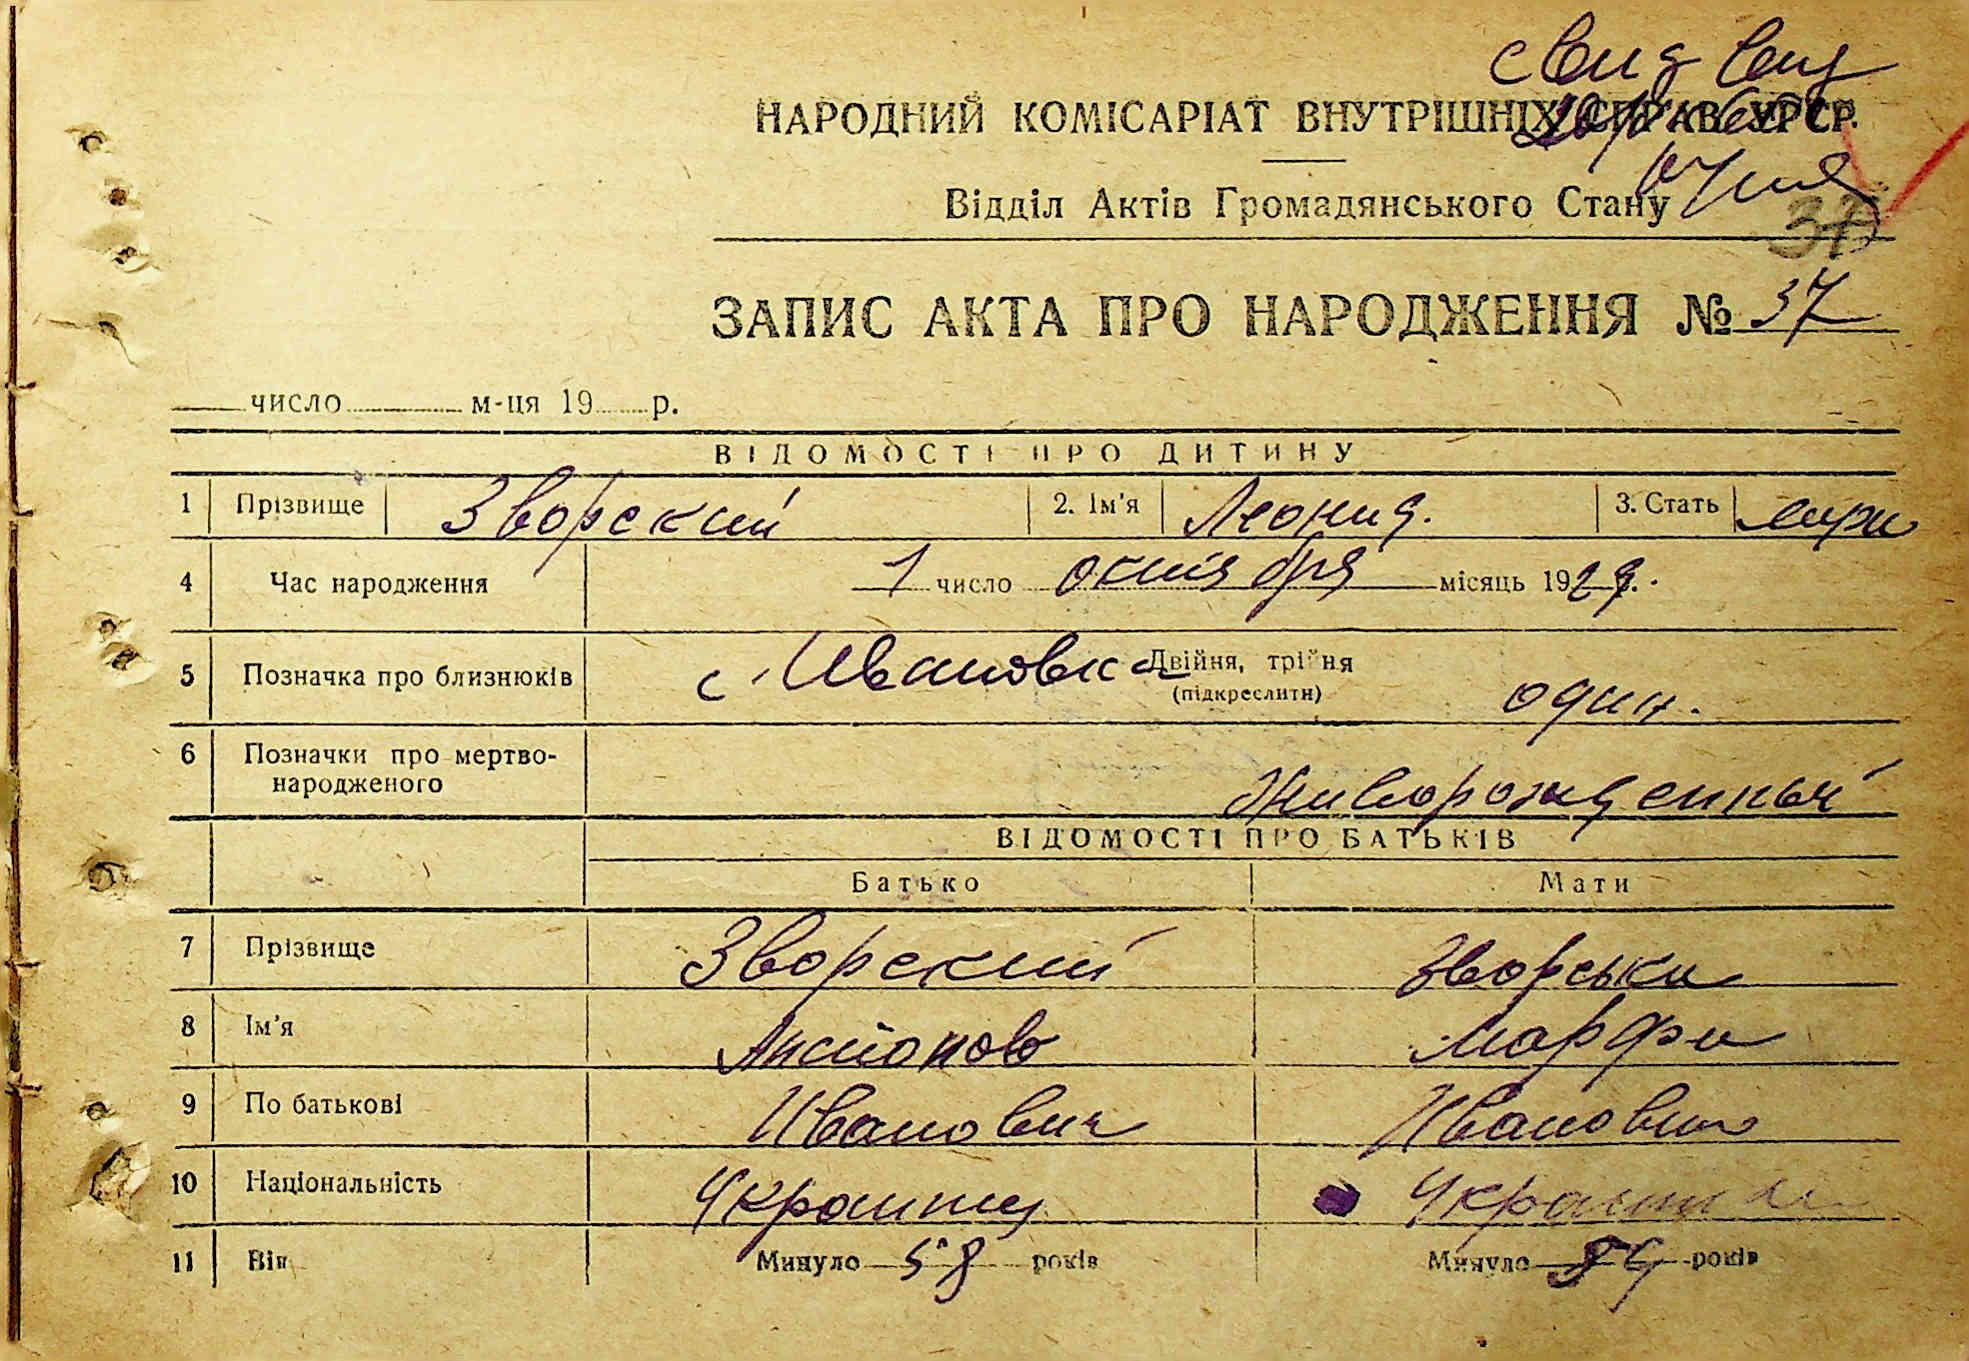 НАРОДНИЙ КОМІСАРІАТ ВНУТРІШНІХ СПРАВ УРСР.
Відділ Актів Громадянського Стану
37
ЗАПИС АКТА ПРО НАРОДЖЕННЯ № 37
число м-ця 19 р.
ВІДОМОСТІ ПРО ДИТИНУ
1 Прізвище Зворский 2. Ім'я Леонид. 3. Стать
4 Час народження 1 число октября місяць 1929.
5 Позначка про близнюків с. Ивановка Двійня, трійня
(підкреслити) один.
6 Позначки про мертво-
народженого Живорожденный
ВІДОМОСТІ ПРО БАТЬКІВ
Батько Мати
7 Прізвище Зворский Зворська
8 Ім'я Марфа
9 По батькові Иванович Ивановна
10 Національність Украинец Украинка
11 Вік Минуло 58 років Минуло років